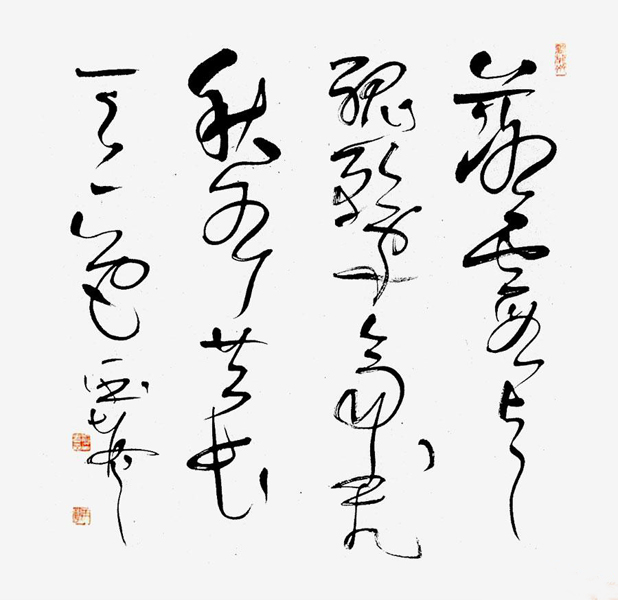 落霞与
孤鹜齐飞
秋水共长
天一色